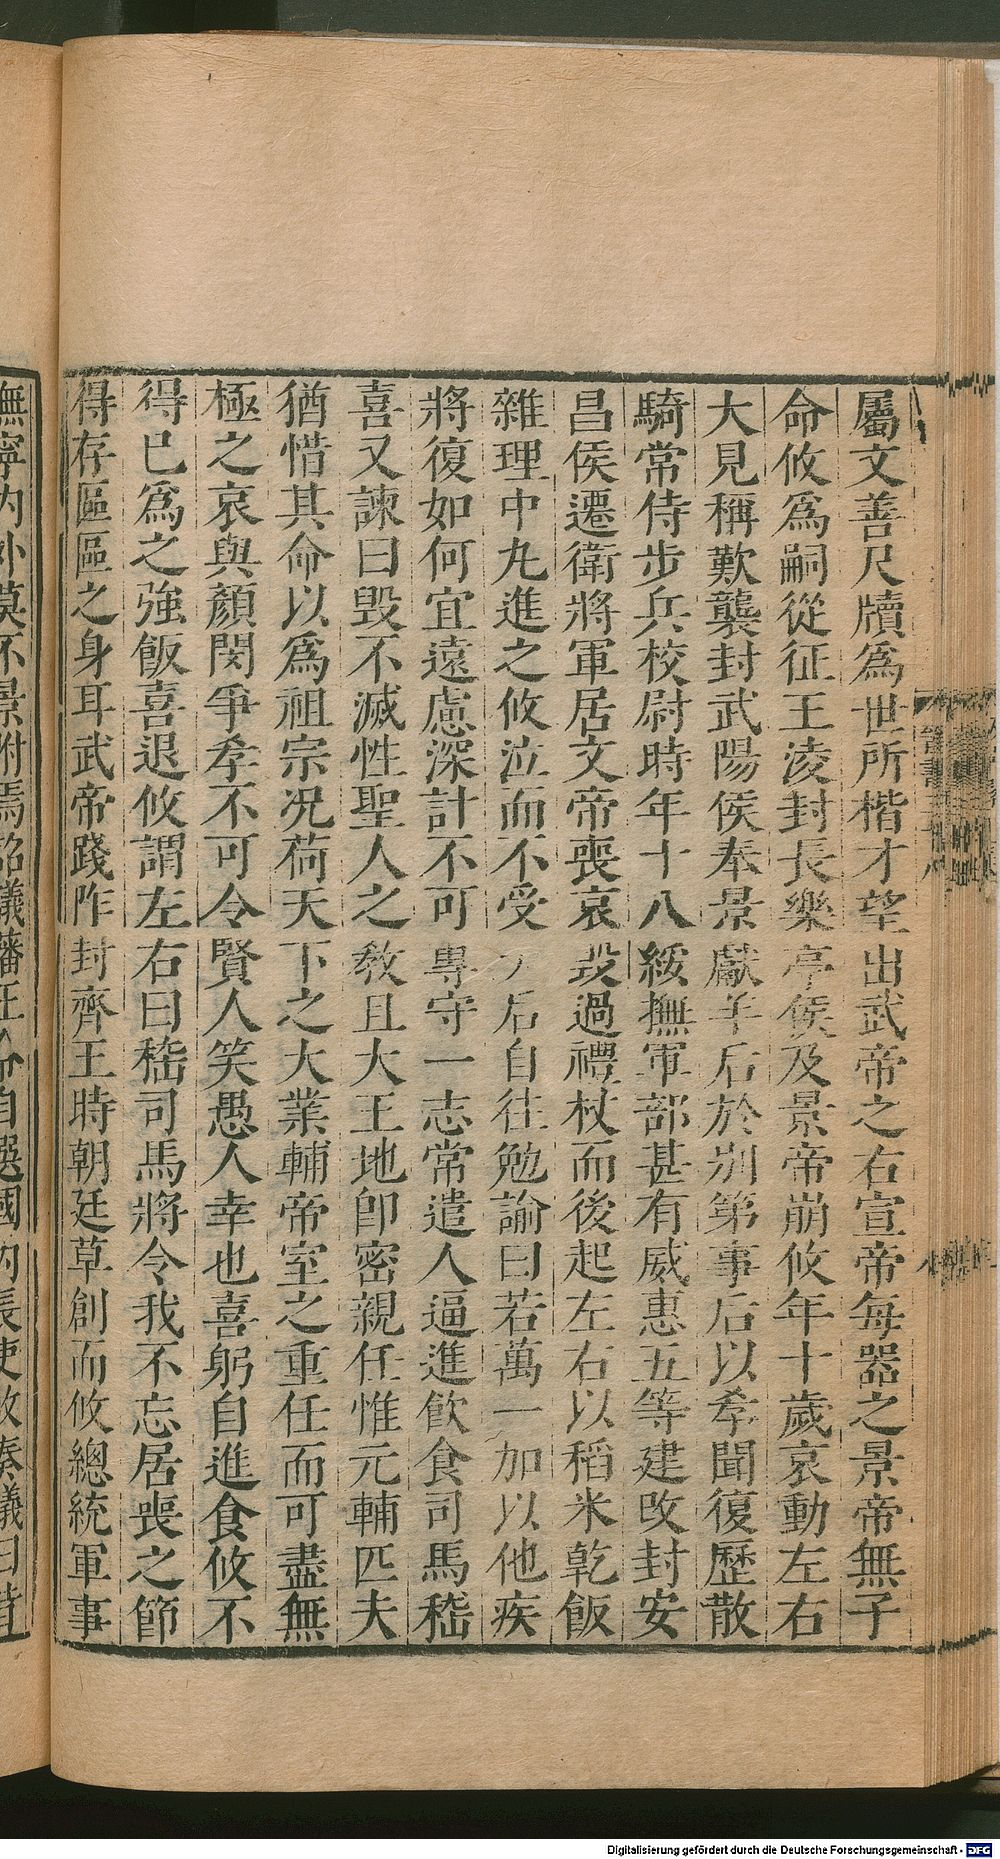 屬文善尺牘爲世所楷才望出武帝之右宣帝每器之景帝無子
命攸爲嗣從征王淩封長樂亭侯及景帝崩攸年十歲哀動左右
大見稱歎襲封武陽侯奉景獻羊后於別第事后以孝聞復歷散
騎常侍步兵校尉時年十八綏撫軍部甚有威惠五等建改封安
昌侯遷衛將軍居文帝喪哀毀過禮杖而後起左右以稻米乾飯
雜理中丸進之攸泣而不受太后自往勉諭曰若萬一加以他疾
將復如何宜遠慮深計不可專守一志常遣人逼進飲食司馬嵇
喜又諫曰毀不滅性聖人之教且大王地卽密親任惟元輔匹夫
猶惜其命以爲祖宗況荷天下之大業輔帝室之重任而可盡無
極之哀與顏閔爭孝不可令賢人笑愚人幸也喜躬自進食攸不
得已爲之強飯喜退攸謂左右曰嵇司馬將令我不忘居喪之節
得存區區之身耳武帝踐阼封齊王時朝廷草創而攸總統軍事
撫寧內外莫不景附焉詔議藩王令自選國內長吏攸奏議曰昔
Digitalisierung gefördert durch die Deutsche Forschungsgemeinschaft - DFG